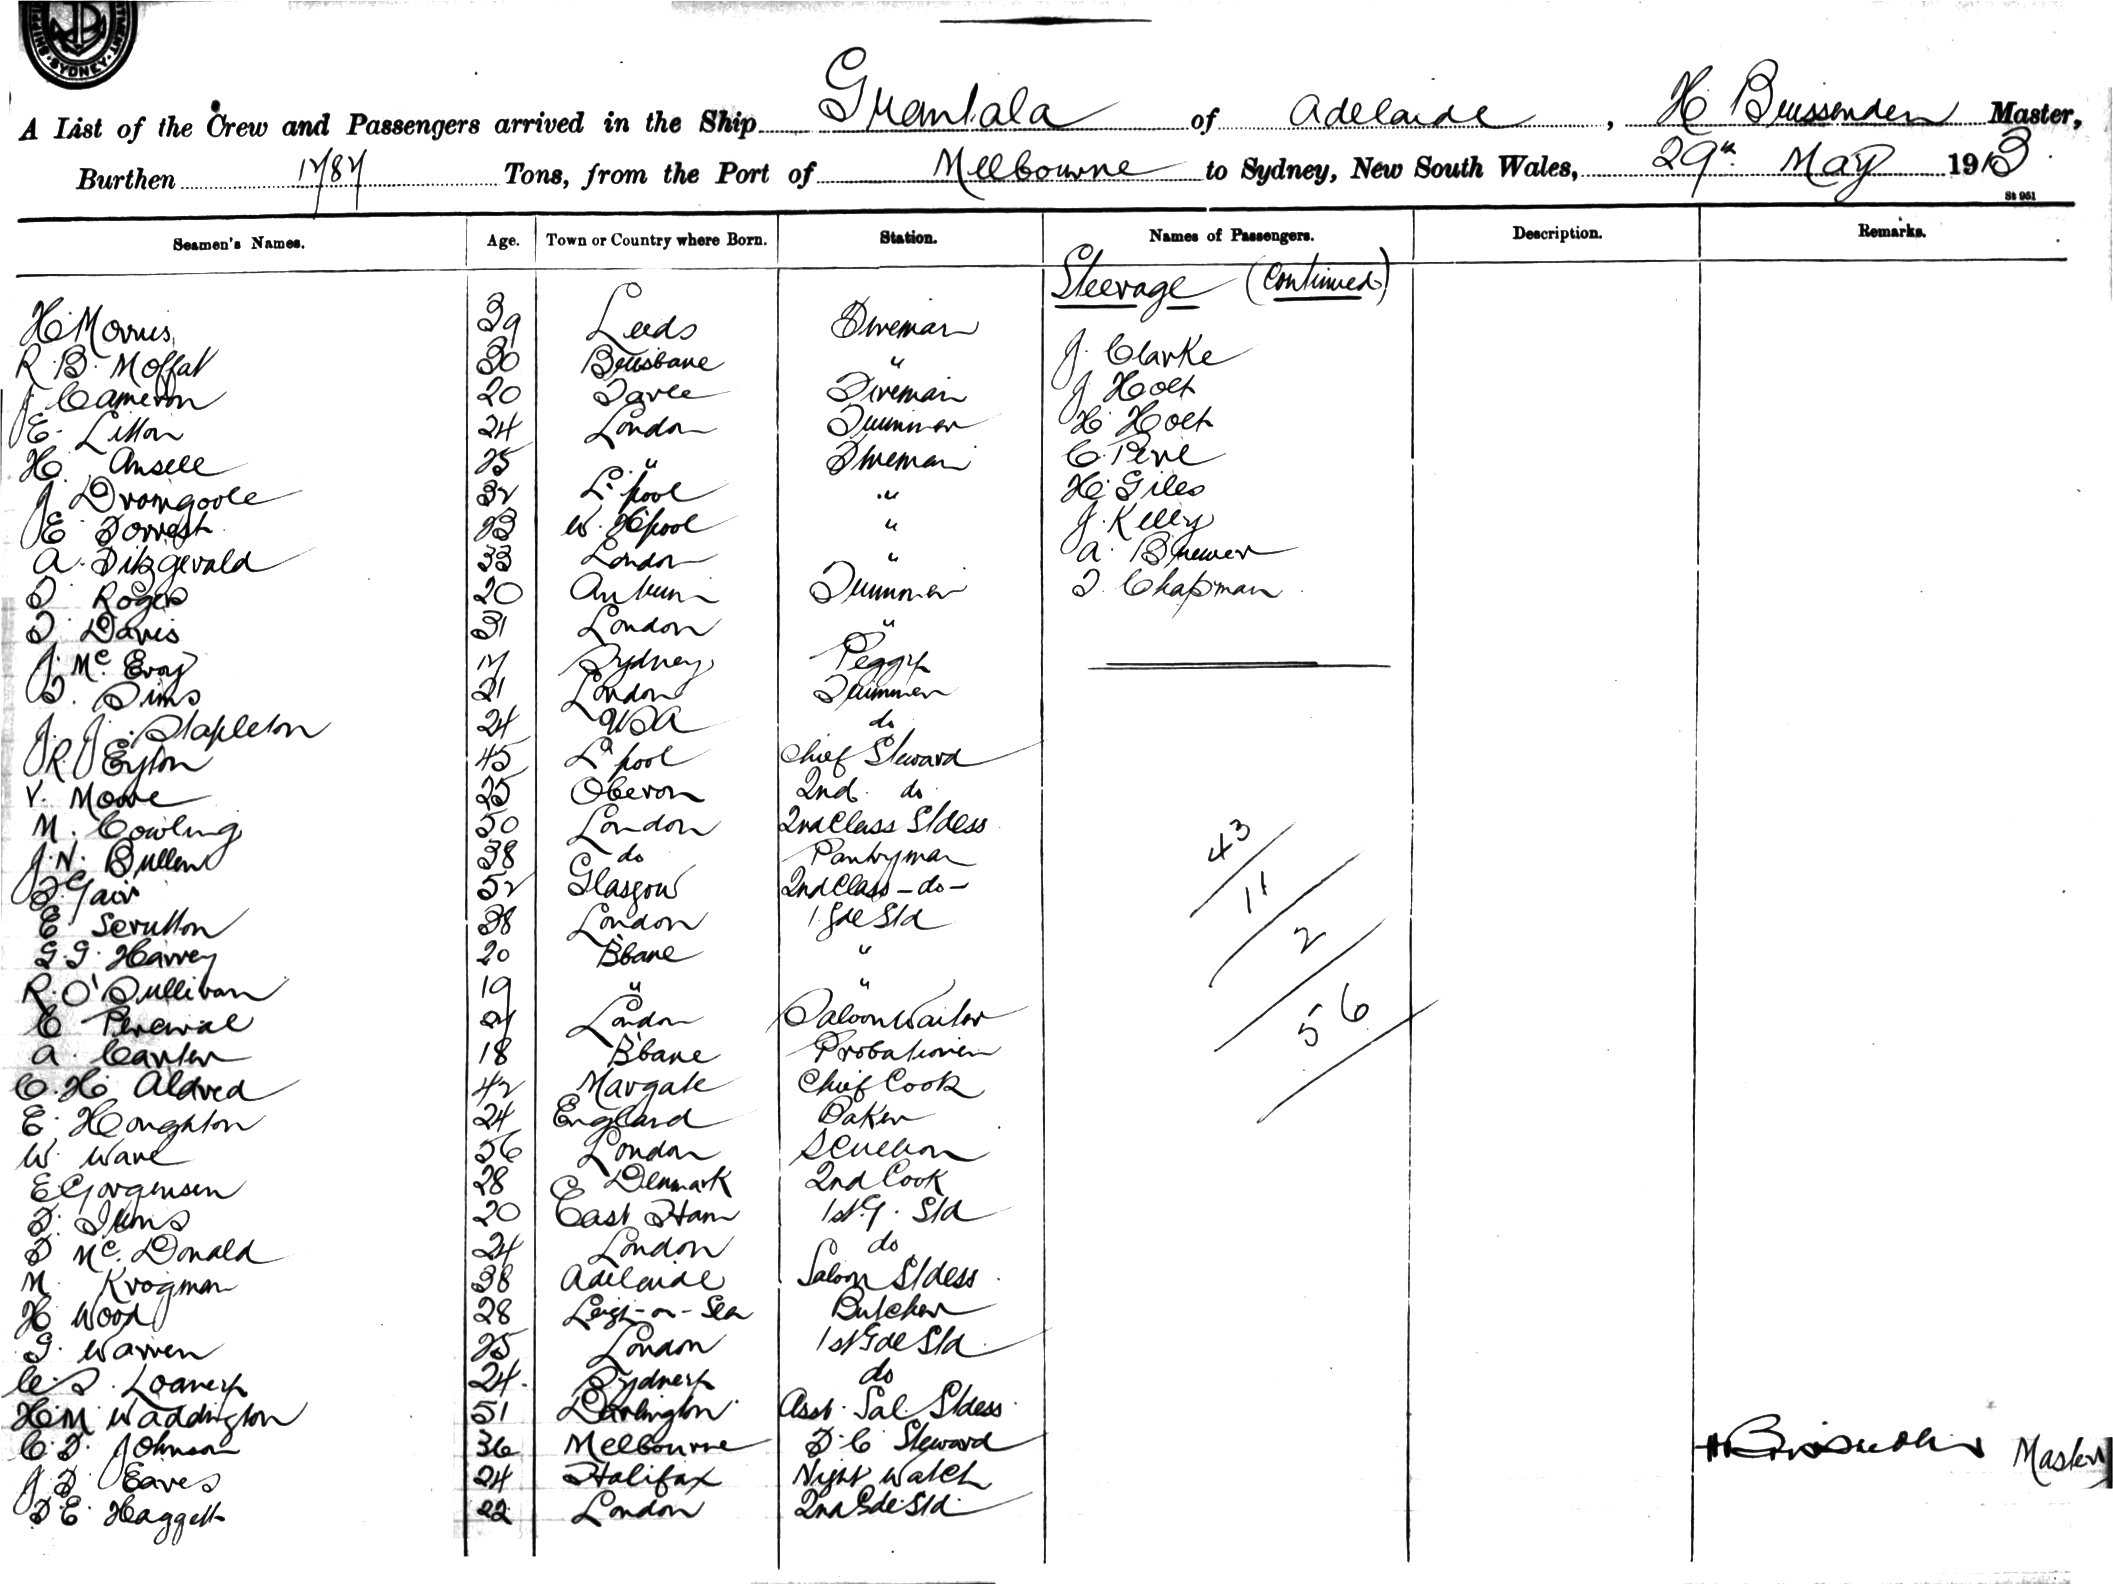 SYDNEY
A List of the Crew and Passengers arrived in the Ship Grantala of Adelaide, H Brissenden Master,
Burthen 1787 Tons, from the Port of Melbourne to Sydney, New South Wales, 29th May 1913
St 961
Seamen's Names. Age. Town or Country where Born. Station. Names of Passengers. Description. Remarks.
Steerage (Continued)
H. Morris 39 Leeds Fireman
R. B. Moffat 30 Brisbane " J. Clarke
J Cameron 20 Fireman J Holt
E. Litton 24 London Trimmer H Holt
H. Ansell 25 " Fireman C.
J Dromgoole 32 L'pool " H. Giles
E Forrest 23 W. H'pool " J. Kelly
A. Fitzgerald 33 London " A. Brewer
T. Rogers 20 Trimmer T Chapman
T Davis 31 London "
J. McEvoy 17 Sydney Peggy
T. Sims 21 London Trimmer
J. J. Stapleton 24 USA do
J R Eyton 45 L'pool Chief Steward
V. Moore 25 Oberon 2nd do
M. Cowling 50 London 2nd Class St/dess
J. N. Bullen 38 do Pantryman
T Gair 52 Glasgow 2nd Class - do -
E Scrutton 38 London 1 Gde Std
G. G. Harvey 20 B'bane "
R. O'Sullivan 19 " "
C Percival 27 London Saloon Waiter
A. Carter 18 B'bane Probationer
C. H. Aldred 42 Margate Chief Cook
E. Houghton 24 England Baker
W. Ware 56 London Scullion
E Gorgensen 28 Denmark 2nd Cook
20 East Ham 1st G. Std
D McDonald 24 London do
M. Krogman 38 Adelaide Saloon St/dess
H Wood 28 Leigh-on-Sea Butcher
G. Warren 25 London 1st Gde Std
24. Sydney do
H. M. Waddington 51 Darlington Asst. Sal. St/dess
C. F. Johnson 36 Melbourne F. C Steward
J. F. Eaves 24 Halifax Night Watch
F. E. Haggett 22 London 2nd Gde Std.
43
11
2
56
H Brissenden Master